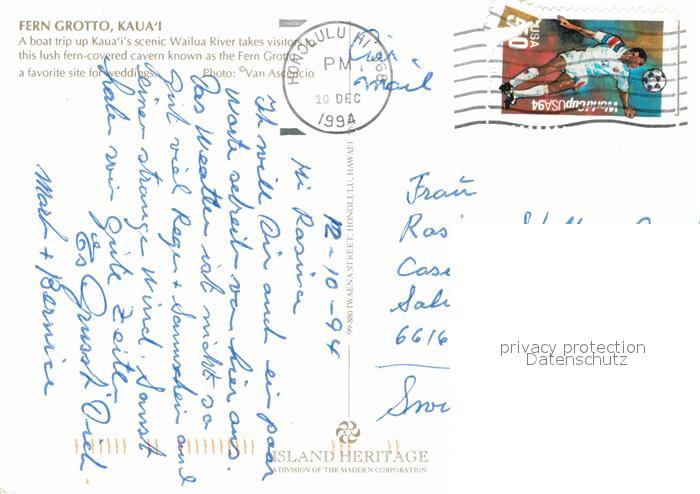 FERN GROTTO, KAUA'I
A boat trip up Kaua'i's scenic Wailua River takes visitors
this lush fern-covered cavern known as the Fern Grotto
a favorite site for weddings. Photo: ©Van Ascencio
HONOLULU HI 968
PM
10 DEC
1994
Air
mail
USA
50
WorldCupUSA94
12-10-94
Hi Rosina
Ich will Dir auch ein paar
Worte schreib von hier aus.
Das Weather ist nicht so
Gut viel Regen + Sonnschein and
einer strange Wind. Sonst
habe wir Gute Zeiten
Es Grusst Dich
Mark + Bernice
99-880 IWAENA STREET, HONOLULU, HAWAI'I
Frau
Ros
Case
Salu
6616
ISLAND HERITAGE
A DIVISION OF THE MADDEN CORPORATION
privacy protection
Datenschutz